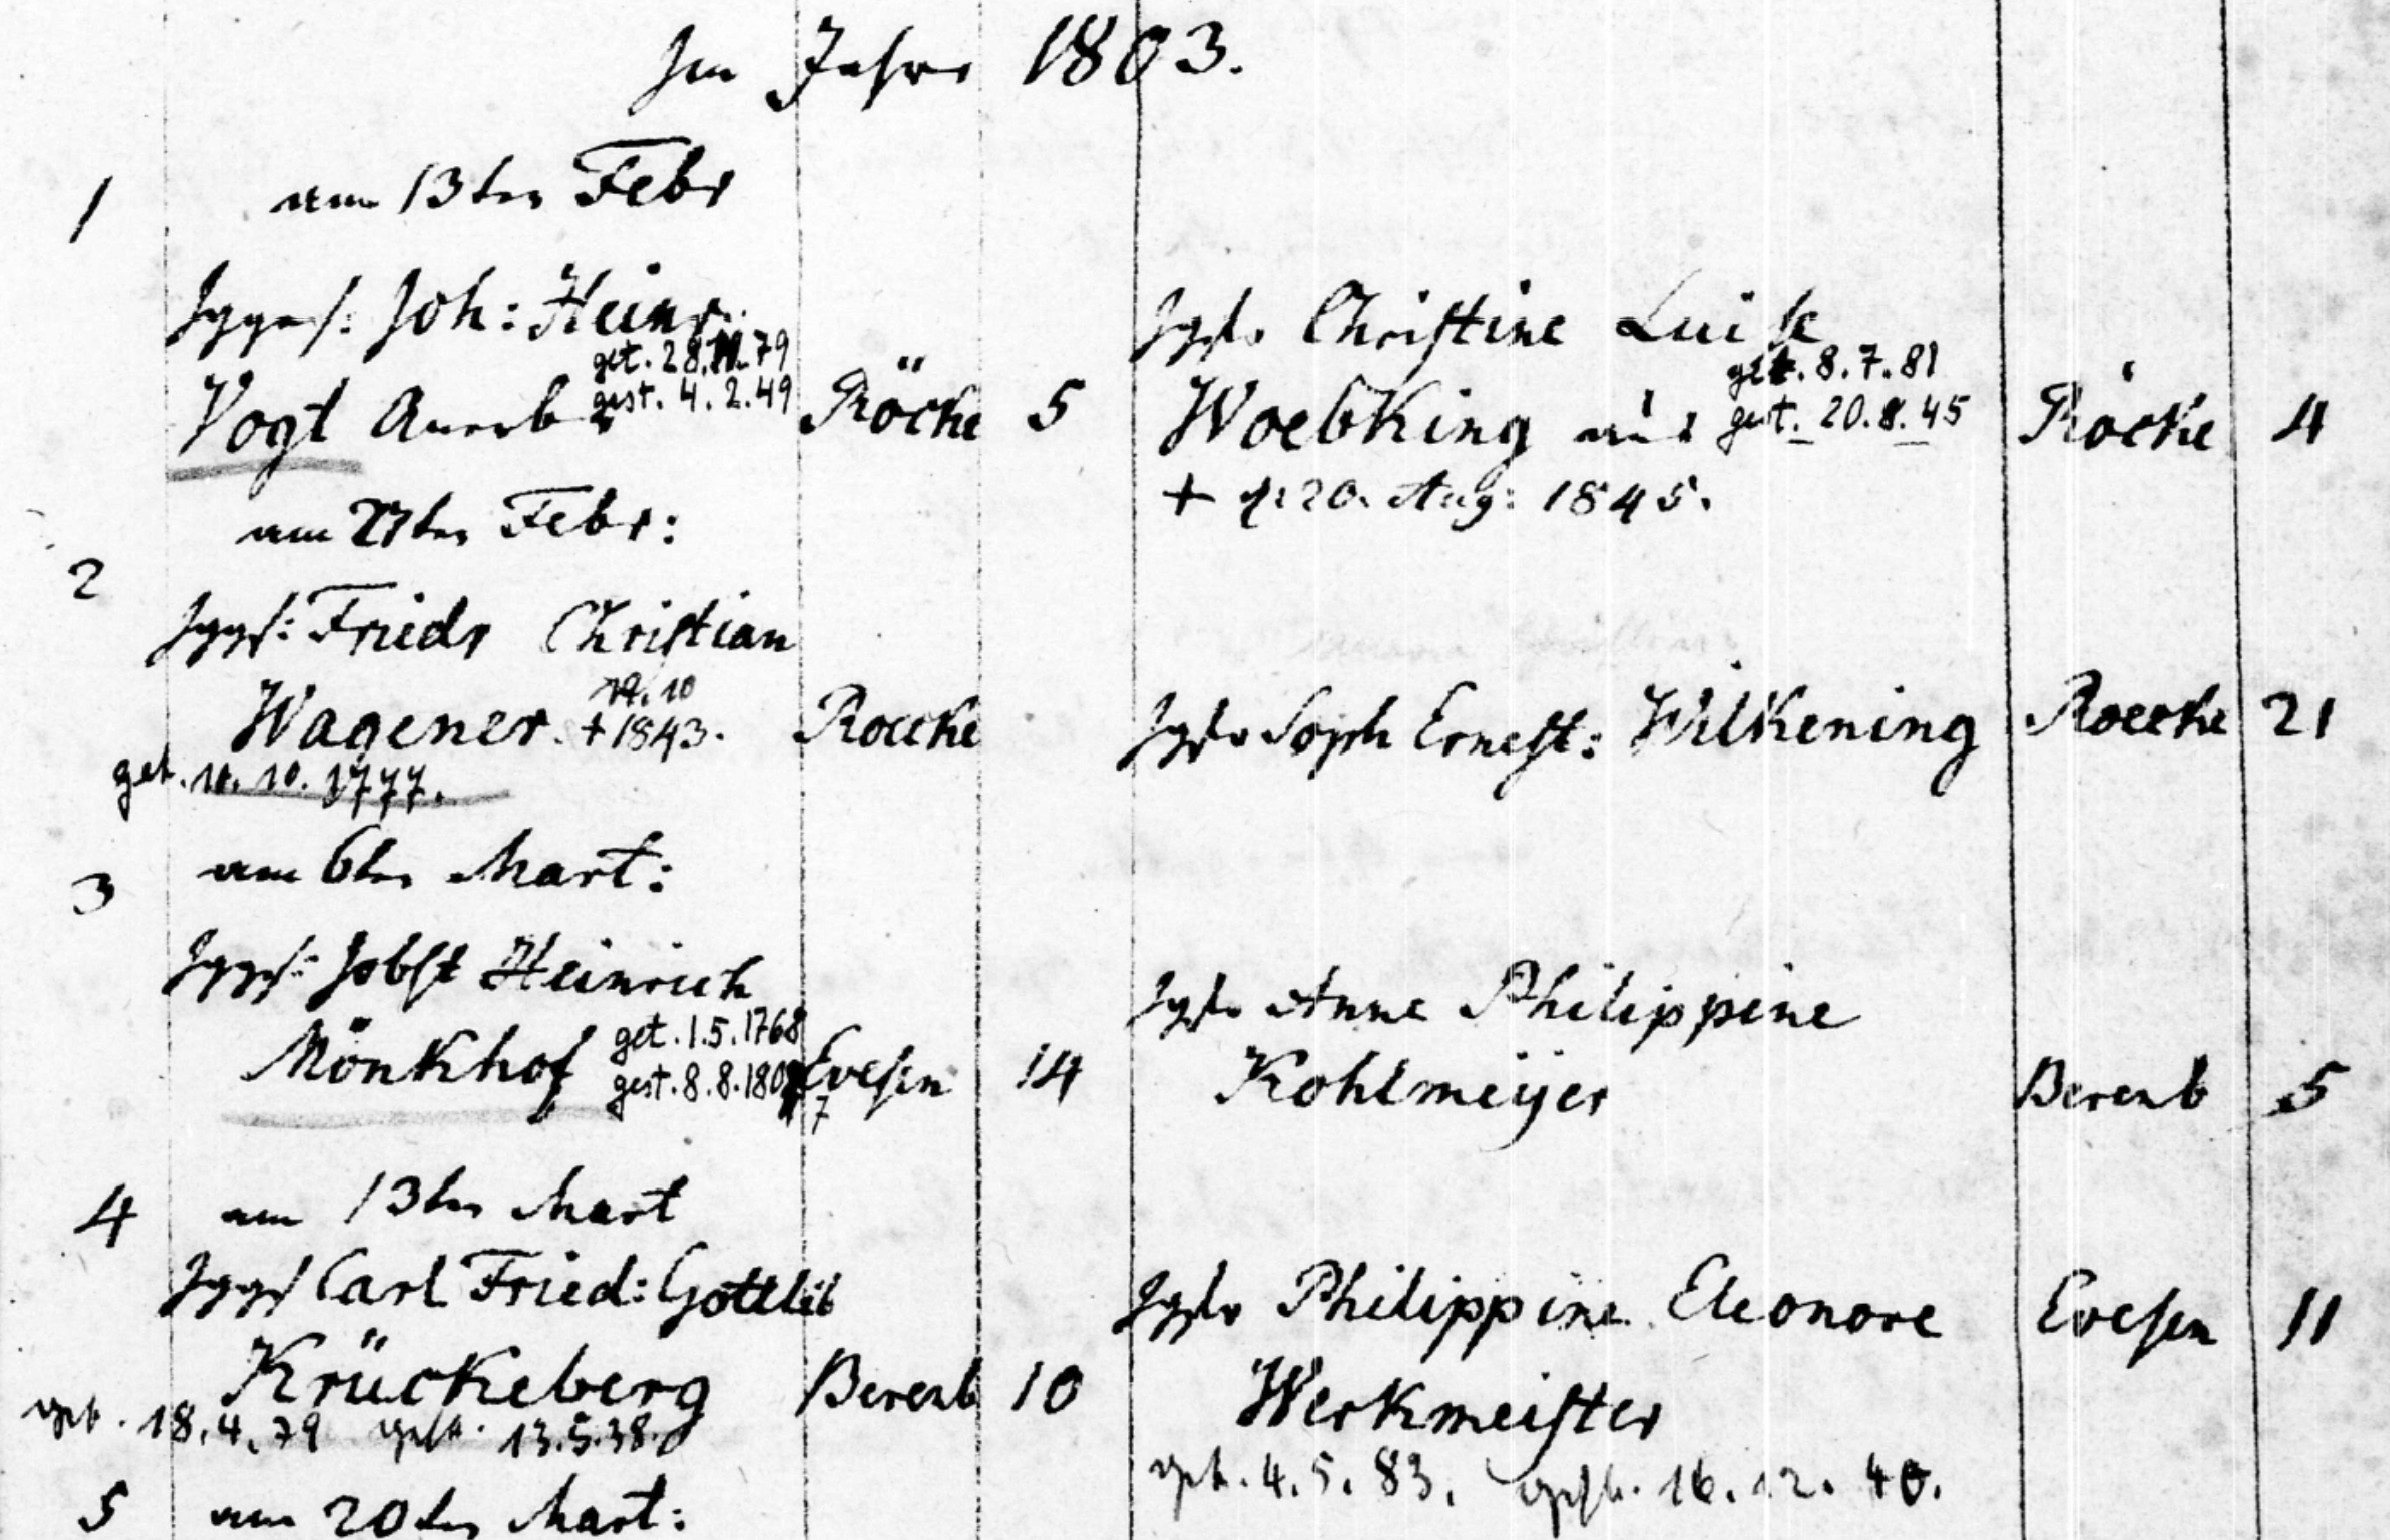 Im Jahre 1803.
1 am 13ten Febr
Jggs: Joh: Heinr. Jgfr Christine Luise
get. 79 get. 8.7.81
Vogt gest. 4.2.49 Röcke 5 Woebking aus gest. 20.8.45 Röcke 4
+ d. 20. Aug: 1845.
am 27ten Febr:
2
Jggs: Friedr Christian
19.10
Wagener. +1843. Roecke Jgfr Soph Ernest: Wilkening Roecke 21
get. 10. 1777.
3 am 6ten Mart:
Jggs: Jobst Heinrich Jgfr Anne Philippine
get. 1.5.1768
Mönkhof gest. 8.8.180 Evesen 14 Kohlmeijer Berenb 5
7
4 am 13ten Mart
Jggs Carl Fried: Gottlieb Jgfr Philippine Eleonore Evesen 11
Krückeberg Berenb 10 Werkmeister
geb. 18.4.79 gest. 13.5.38. geb. 4.5.83. gest. 16.12.40.
5 am 20ten Mart: